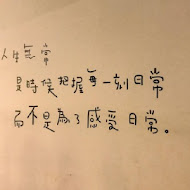 人生無常
是時候把握每一刻日常
而不是為了感受日常。